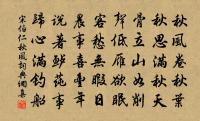 秋風卷秋葉
秋思滿秋天
骨立山如削
聲低雁欲眠
客愁無暇日
農事喜豐年
說著鱸蓴事
歸心滿釣船
宋伯仁秋風詞典網